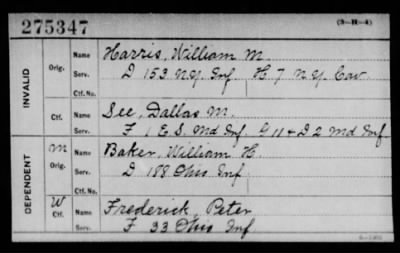 275347 (3-H-4)
INVALID
Orig. Name Harris, William M.
Serv. D 153 N.Y. Inf H 7 N.Y. Cav.
Ctf. No.
Ctf. Name See, Dallas M.
Serv. F 1 E. S. Md Inf G 11 & D 2 Md Inf
DEPENDENT
M Orig. Name Baker, William H.
Serv. D, 188 Ohio Inf.
Ctf. No.
W Ctf. Name Frederick, Peter
Serv. F 33 Ohio Inf